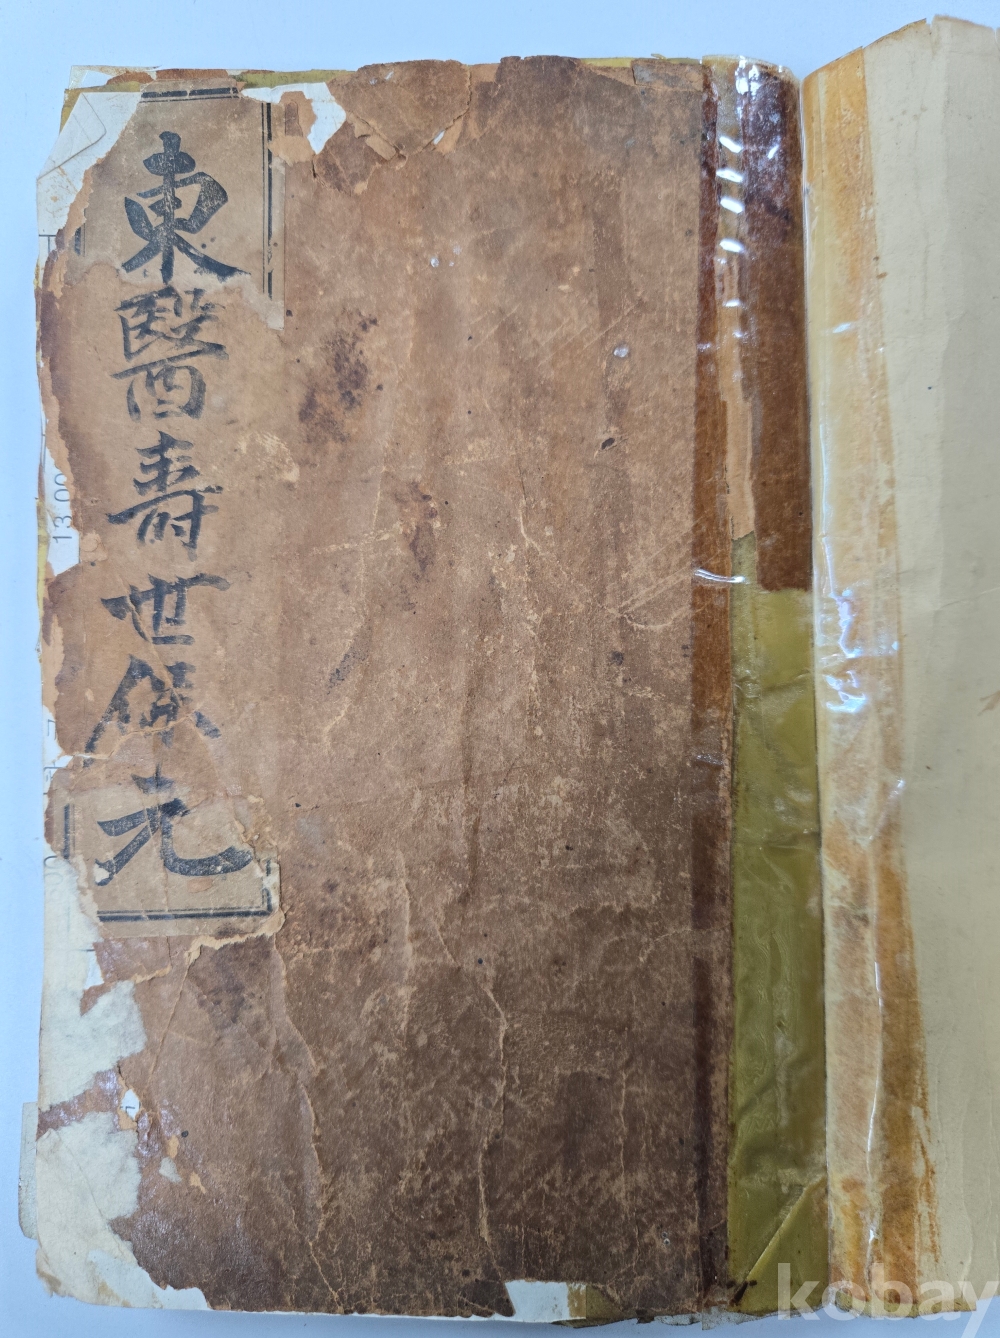 東醫壽世保元
13.00
kobay